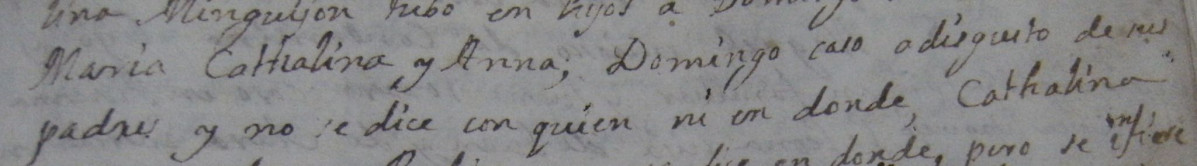 lina Minguijon tubo en hijos a Domingo
Maria Cathalina y Anna; Domingo caso a disgusto de sus
padres y no se dice con quien ni en donde, Cathalina
dice en donde, pero se infiere